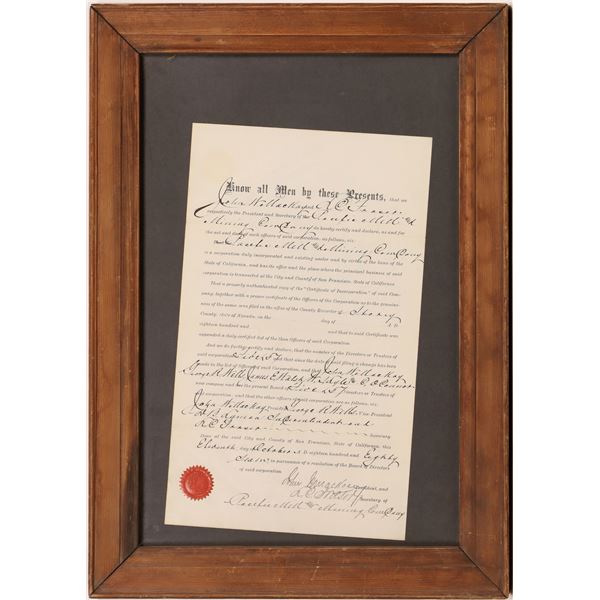 Know all Men by these Presents, that we
John William Mackay & R C
respectively the President and Secretary of the Pacific Mill &
Mining Company do hereby certify and declare, as and for
the act and deed of such officers of said corporation, as follows, viz:
Pacific Mill & Mining Company
is a corporation duly incorporated and existing under and by virtue of the laws of the
State of California, and has its office and the place where the principal business of said
corporation is transacted at the City and County of San Francisco, State of California
That a properly authenticated copy of the "Certificate of Incorporation" of said Com-
pany, together with a proper certificate of the Officers of the Corporation as to the genuine-
ness of the same was filed in the office of the County Recorder of Storey
County, State of Nevada, on the day of A. D.
eighteen hundred and and that to said Certificate was
appended a duly certified list of the then Officers of said Corporation
And we do further certify and declare, that the number of the Directors or Trustees of
said corporation is five (5) and that since the date of said filing a change has been
made in the list of Officers of said Corporation, and that John W Mackay
George R Wells, James E Walsh C. O'Connor
now compose the present Board of Directors or Trustees of
said corporation, and that the other officers of said corporation are as follows, viz:
John W Mackay President George R Wells Vice President
D B Lyman Superintendent and
R C Secretary
Done at the said City and County of San Francisco, State of California, this
Eleventh day of October A. D. eighteen hundred and Eighty
in pursuance of a resolution of the Board of Directors
of said corporation
John W Mackay President, and
R C Secretary, of
Pacific Mill & Mining Company